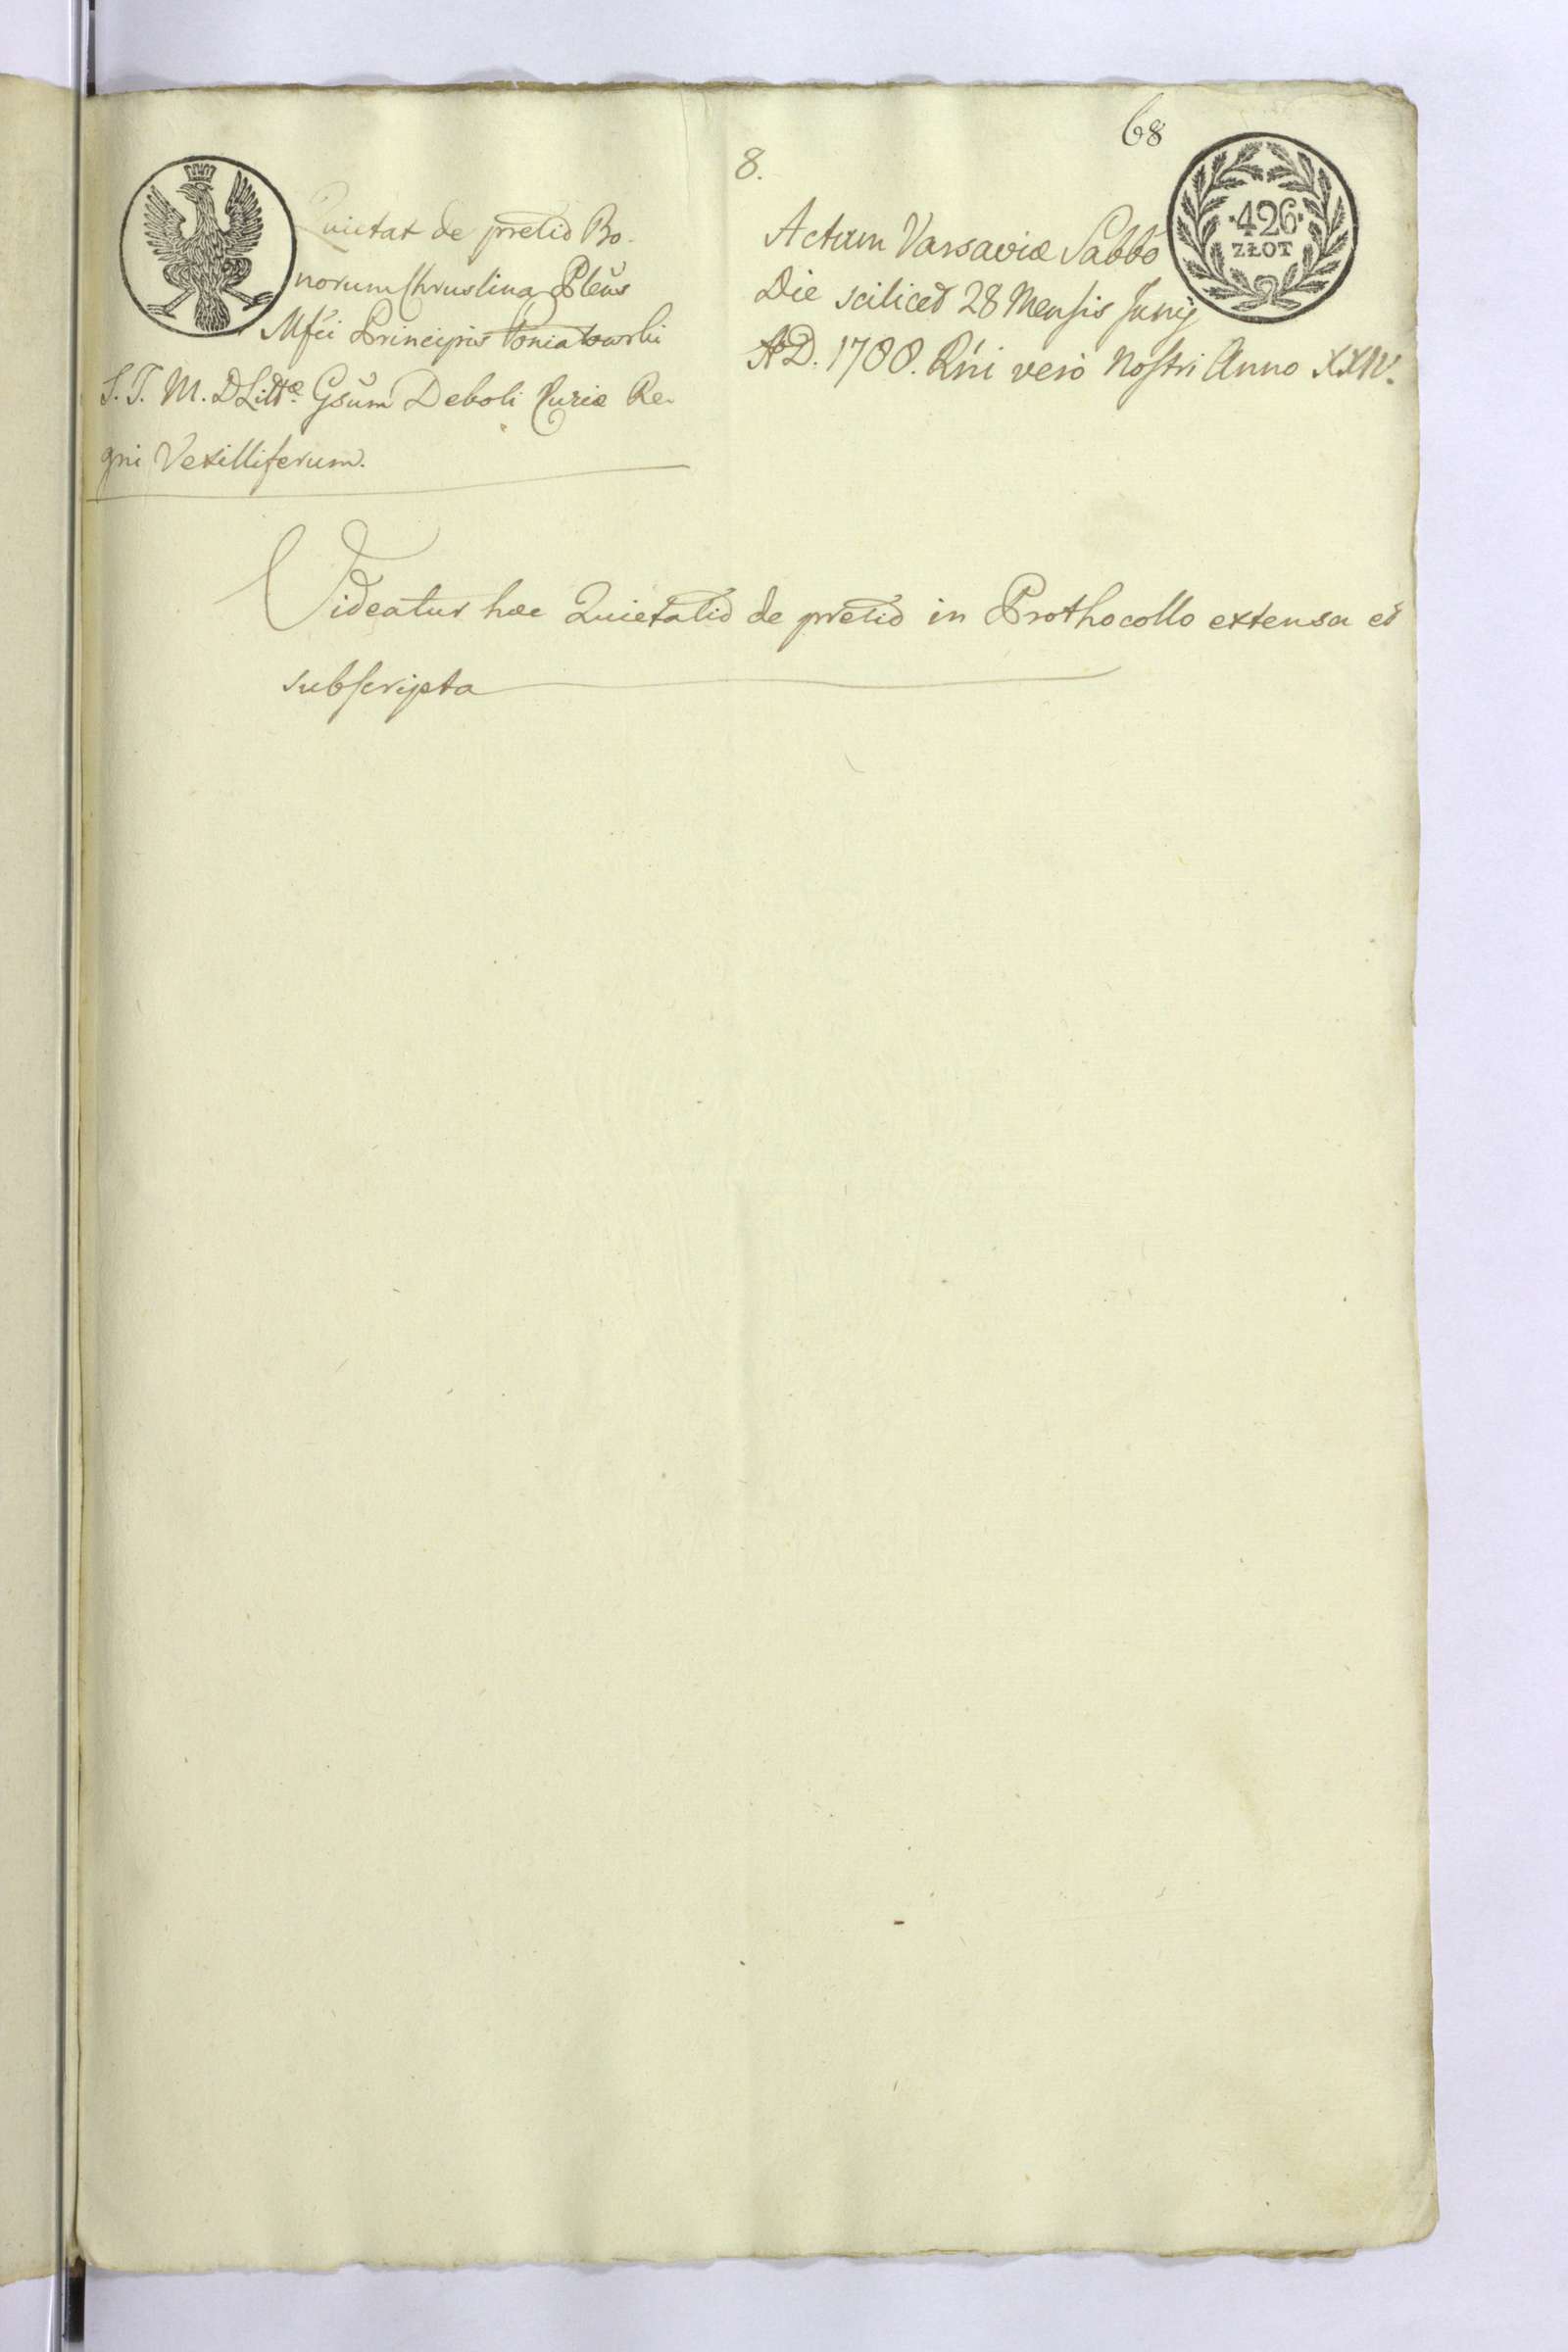 68
8.
Quietat de pretio Bo-
norum Chruslina Plēus
Mfci Principis Poniatowski
S. T. M. D Littæ Gsum Deboli Curiæ Re-
gni Vexilliferum.
Actum Varsaviæ Sabbo
Die scilicet 28 Mensis Junij
AD. 1788. Rni vero Nostri Anno XXIV.
·426·
ZŁOT
Videatur hæc Quietatio de pretio in Prothocollo extensa et
subscripta